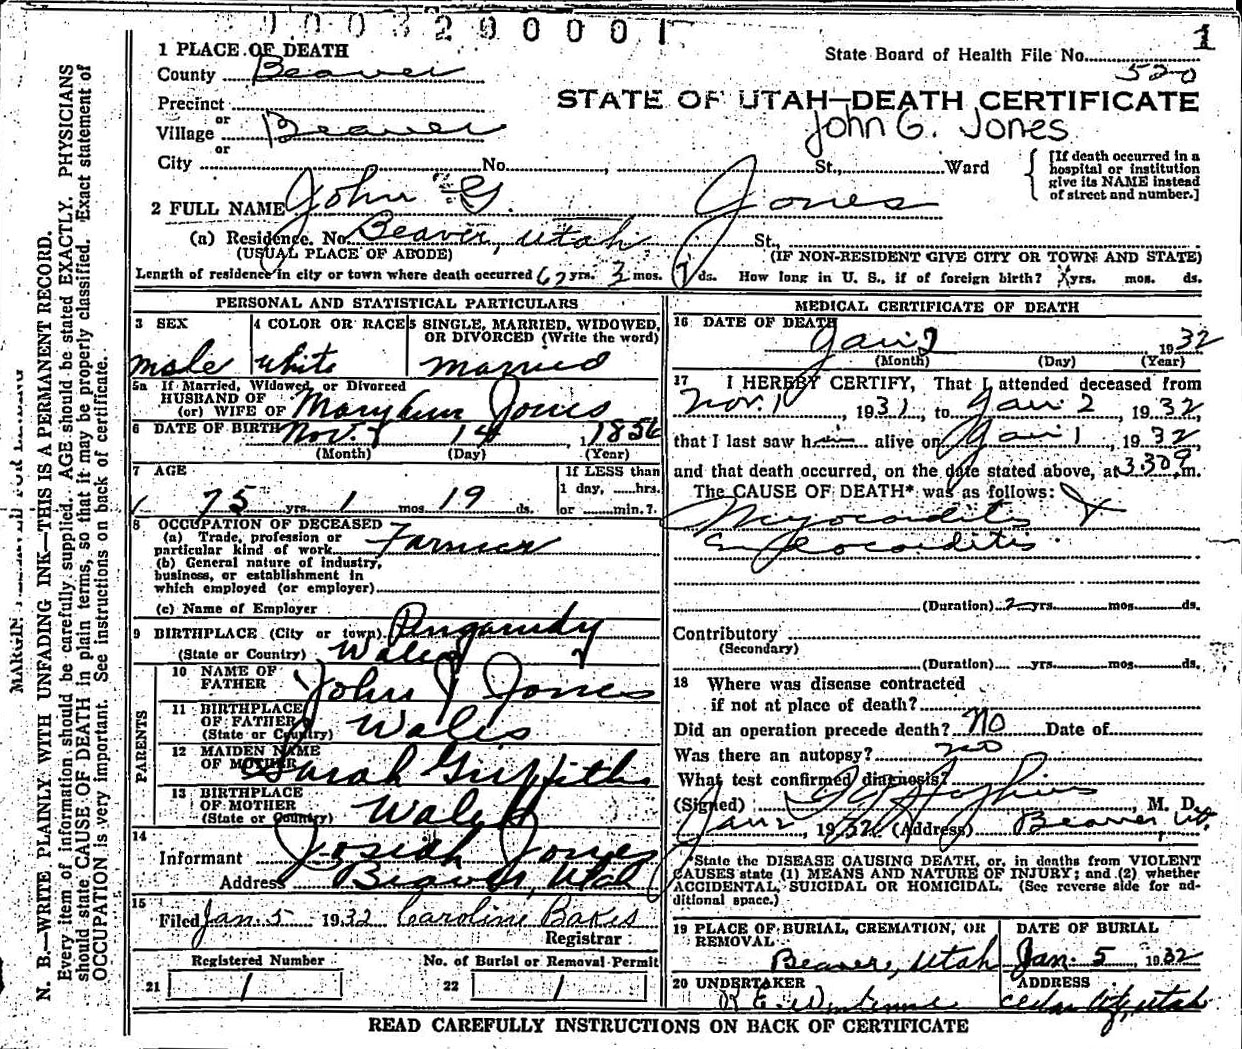 9003290001
1
1 PLACE OF DEATH
State Board of Health File No.
County Beaver
520
Precinct
STATE OF UTAH—DEATH CERTIFICATE
or
Village Beaver
John G. Jones
or
City No. , St., Ward
[If death occurred in a hospital or institution give its NAME instead of street and number.]
2 FULL NAME John G. Jones
(a) Residence. No. Beaver, Utah St.,
(USUAL PLACE OF ABODE) (IF NON-RESIDENT GIVE CITY OR TOWN AND STATE)
Length of residence in city or town where death occurred 67 yrs. 3 mos. ds. How long in U. S., if of foreign birth? yrs. mos. ds.
PERSONAL AND STATISTICAL PARTICULARS
3 SEX
male
4 COLOR OR RACE
white
5 SINGLE, MARRIED, WIDOWED, OR DIVORCED (Write the word)
married
5a If Married, Widowed, or Divorced
HUSBAND OF
(or) WIFE OF Mary Ann Jones
6 DATE OF BIRTH Nov. 14 1856
(Month) (Day) (Year)
7 AGE
75 yrs. 1 mos. 19 ds.
If LESS than
1 day, hrs.
or min.?
8 OCCUPATION OF DECEASED
(a) Trade, profession or
particular kind of work Farmer
(b) General nature of industry,
business, or establishment in
which employed (or employer)
(c) Name of Employer
9 BIRTHPLACE (City or town)
(State or Country) Wales
PARENTS
10 NAME OF
FATHER John Jones
11 BIRTHPLACE
OF FATHER
(State or Country) Wales
12 MAIDEN NAME
OF MOTHER Sarah Griffiths
13 BIRTHPLACE
OF MOTHER
(State or Country) Wales
14
Informant Josiah Jones
Address Beaver, Utah
15
Filed Jan. 5 1932 Caroline Bakes
Registrar
Registered Number
21 1
No. of Burial or Removal Permit
22 1
MEDICAL CERTIFICATE OF DEATH
16 DATE OF DEATH
Jan 2 1932
(Month) (Day) (Year)
17 I HEREBY CERTIFY, That I attended deceased from
Nov. 1, 1931, to Jan 2 1932,
that I last saw him alive on Jan 1, 1932,
and that death occurred, on the date stated above, at 3.30 m.
The CAUSE OF DEATH* was as follows:
Myocarditis &
Endocarditis
(Duration) 2 yrs. mos. ds.
Contributory
(Secondary)
(Duration) yrs. mos. ds.
18 Where was disease contracted
if not at place of death?
Did an operation precede death? No Date of
Was there an autopsy? no
What test confirmed diagnosis?
(Signed) , M. D.
Jan 2, 1932 (Address) Beaver, Ut.
*State the DISEASE CAUSING DEATH, or, in deaths from VIOLENT
CAUSES state (1) MEANS AND NATURE OF INJURY; and (2) whether
ACCIDENTAL, SUICIDAL OR HOMICIDAL. (See reverse side for ad-
ditional space.)
19 PLACE OF BURIAL, CREMATION, OR
REMOVAL
Beaver, Utah
DATE OF BURIAL
Jan. 5, 1932
20 UNDERTAKER
ADDRESS
Cedar City, Utah
READ CAREFULLY INSTRUCTIONS ON BACK OF CERTIFICATE
N. B.—WRITE PLAINLY WITH UNFADING INK—THIS IS A PERMANENT RECORD.
Every item of information should be carefully supplied. AGE should be stated EXACTLY. PHYSICIANS
should state CAUSE OF DEATH in plain terms, so that it may be properly classified. Exact statement of
OCCUPATION is very important. See instructions on back of certificate.